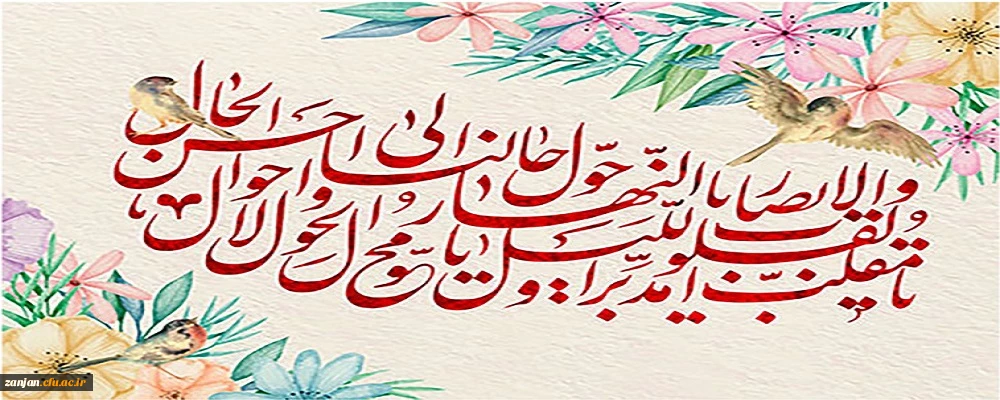 یا مقلب القلوب و الابصار یا مدبر اللیل و النهار یا محول الحول و الاحوال حول حالنا الی احسن الحال
zanjan.cfu.ac.ir